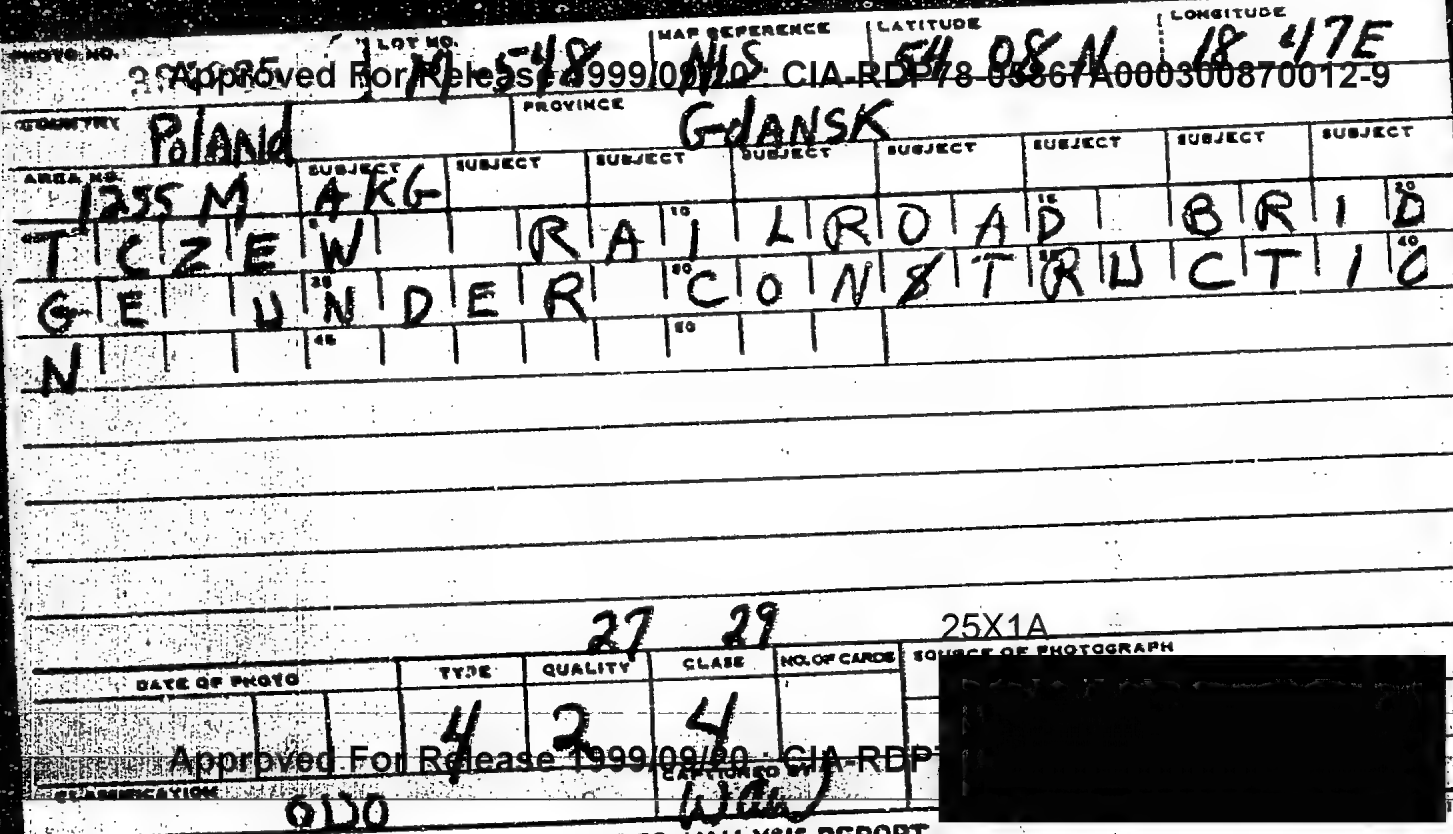 PHOTO NO. LOT NO. MAP REFERENCE LATITUDE LONGITUDE
M-548 NIS 54 08 N 18 47E
Approved For Release 1999/09/20 : CIA-RDP78-05867A000300870012-9
COUNTRY Poland PROVINCE GdANSK
AREA NO. SUBJECT SUBJECT SUBJECT SUBJECT SUBJECT SUBJECT SUBJECT SUBJECT
1255 M AKG
TCZEW RAILROAD BRID
GE UNDER CONSTRUCTIO
N
27 29 25X1A
DATE OF PHOTO TYPE QUALITY CLASS NO. OF CARDS SOURCE OF PHOTOGRAPH
4 2 4
Approved For Release 1999/09/20 : CIA-RDP7
CLASSIFICATION CAPTIONED BY
REPORT